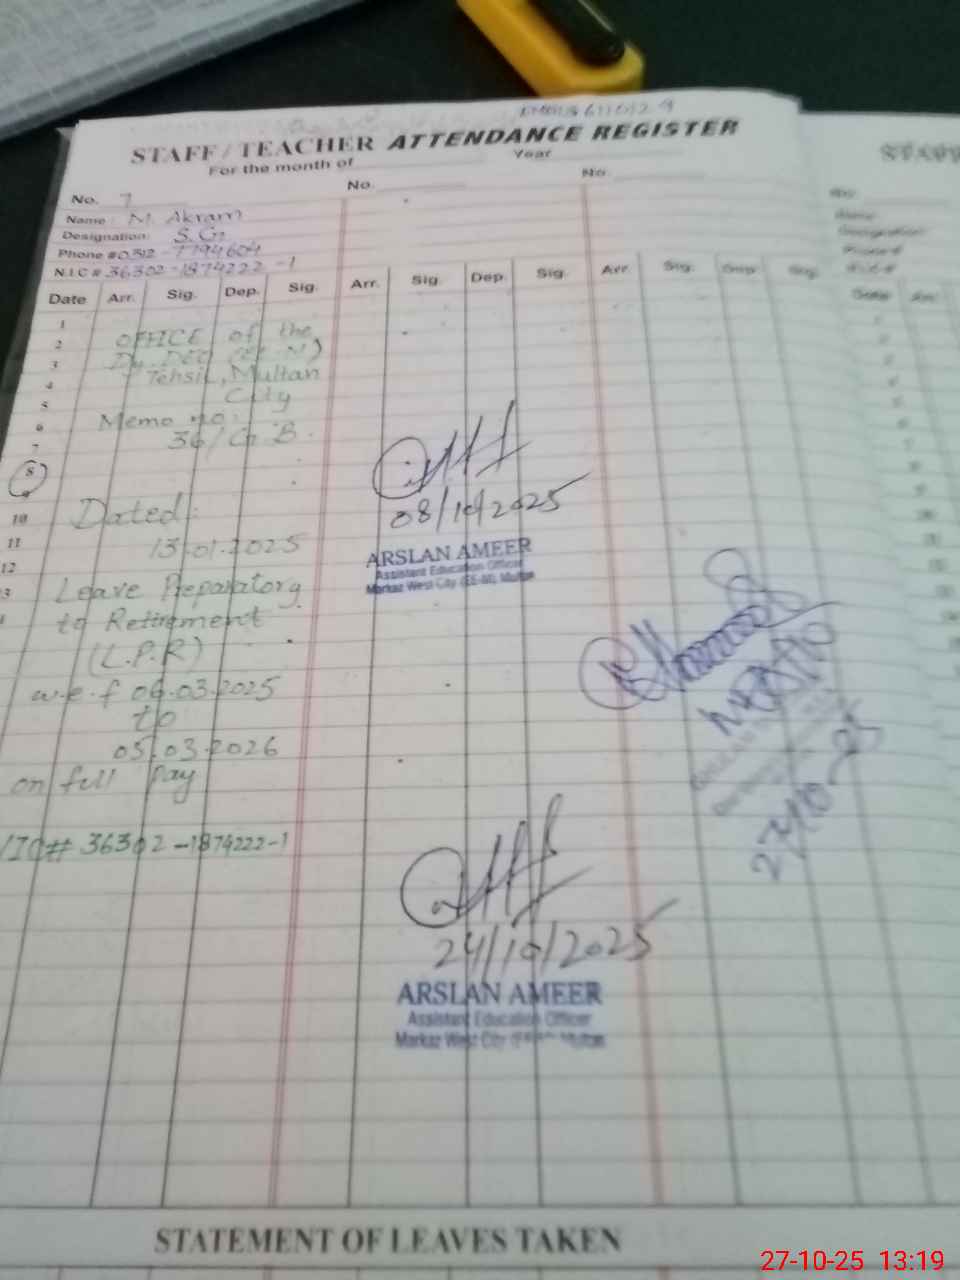 STAFF / TEACHER ATTENDANCE REGISTER
For the month of Year
No. 7 No. No.
Name: M. Akram
Designation: S.G
Phone # 0312-7794604
N.I.C # 36302-1874222-1
Date Arr. Sig. Dep. Sig. Arr. Sig. Dep. Sig. Arr. Sig. Dep. Sig.
1
2
3
4
5
6
7
8
9
10
11
12
OFFICE of the
Dy. DEO
Tehsil, Multan
City
Memo no:
36/G.B.
Dated:
13.01.2025
Leave Preparatory
to Retirement
(L.P.R)
w.e.f 06.03.2025
to
05.03.2026
on full pay
36302-1874222-1
08/10/2025
ARSLAN AMEER
Assistant Education Officer
Markaz West City (EE-M) Multan
27/10-25
24/10/2025
ARSLAN AMEER
Assistant Education Officer
Markaz West City Multan
STATEMENT OF LEAVES TAKEN
27-10-25 13:19